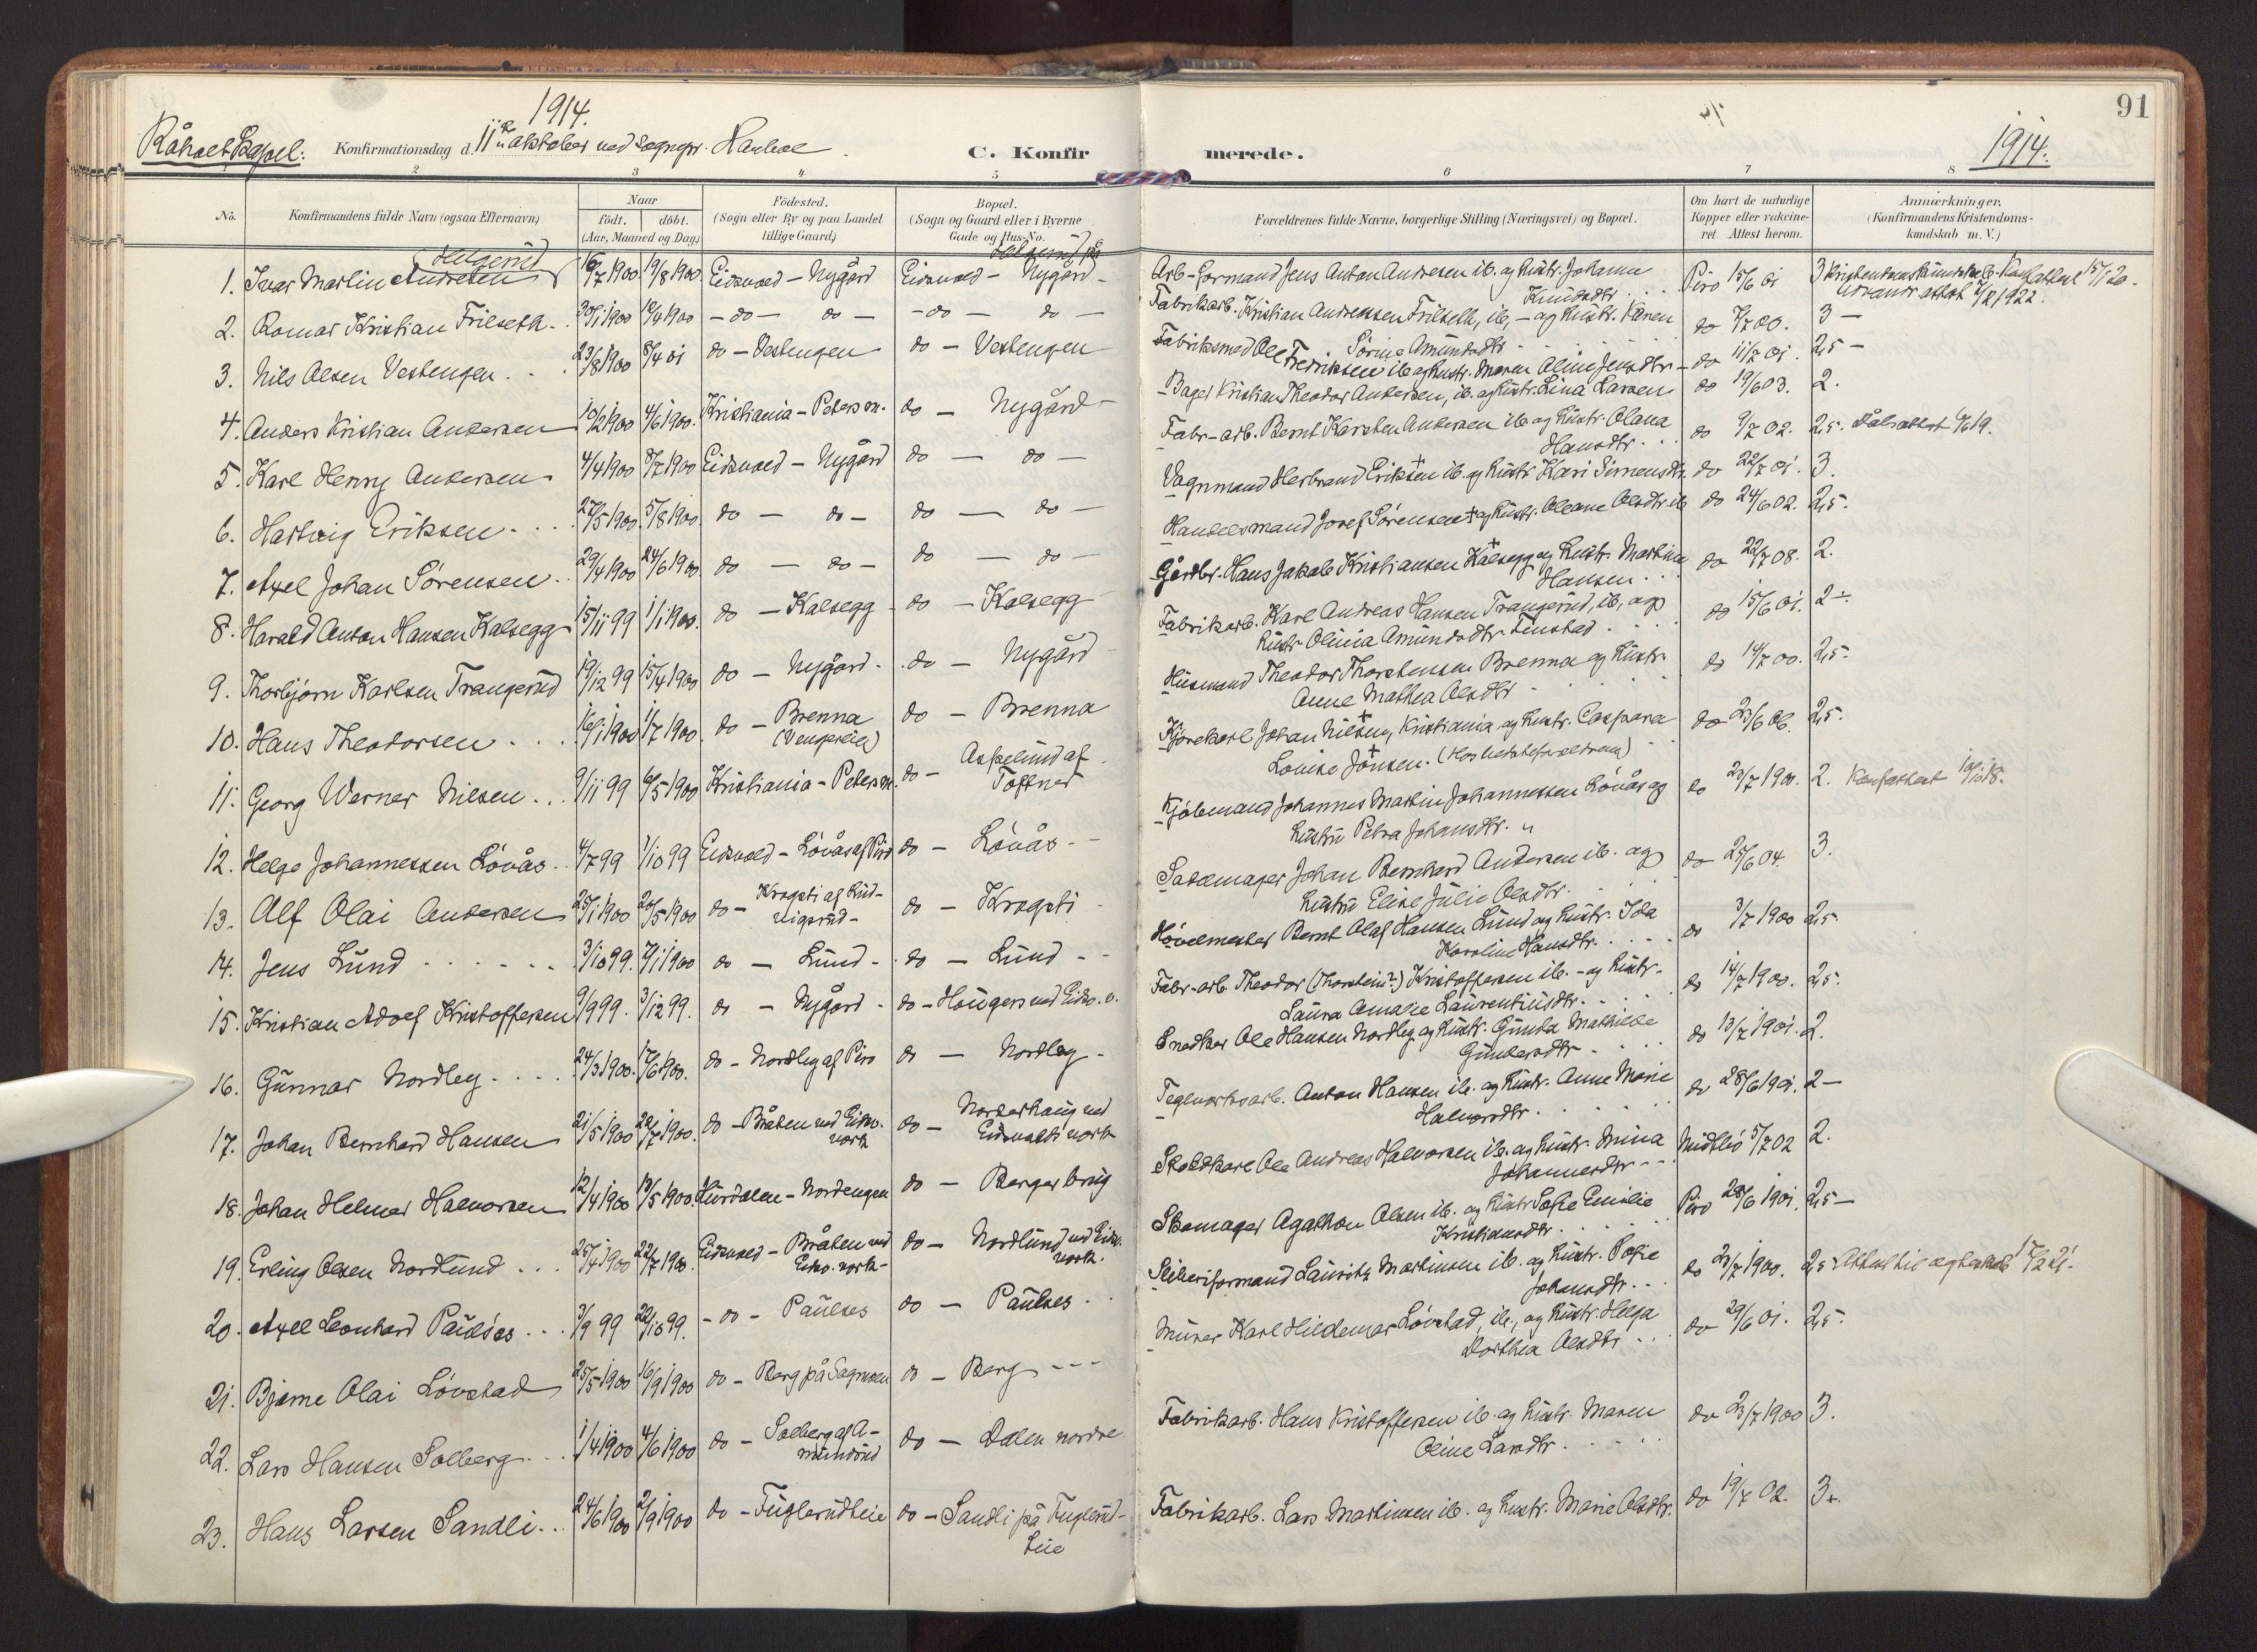 1914.
Råholt Kapel: Konfirmationsdag d. 11 oktober ved sogepr. Hanboe. C. Konfirmerede. 91
1914.
2 3 4 5 6 7 8
No. Konfirmandens fulde Navn (ogsaa Efternavn) Naar födt. döbt. (Aar, Maaned og Dag) Födested. (Sogn eller By og paa Landet tillige Gaard) Bopæl. (Sogn og Gaard eller i Byerne Gade og Hus-No. Forældrenes fulde Navne, borgerlige Stilling (Næringsvei) og Bopæl. Om havt de naturlige Kopper eller vakcineret. Attest herom. Anmærkninger. (Konfirmandens Kristendomskundskab m. V.)
Helgerud
1. Ivar Martin Andresen 16/7 1900 19/8 1900 Eidsvold - Nygård Eidsvold - Nygård - Arb-formand Jens Anton Andresen ib. og hustr. Johanne Knudsdtr. Piro 15/6 01 3 Kristendomskundskab. Konf attest 15/1 20.
Udvandr. attest 1922.
2. Romar Kristian Frilseth. 30/1 1900 16/4 1900 - do - do - - do - do - Fabrikarb. Kristian Andreassen Frilseth, ib, - og hustr. Karen Sörine Amundsdtr do 7/7 00. 3 -
3. Nils Olsen Vestengen. 23/8 1900 8/4 01 do - Vestengen do - Vestengen Fabriksmed Ole Fredriksen ib og hustr. Maren Oline Jensdtr - do 11/7 01. 2,5 -
4. Anders Kristian Andersen 10/2 1900 4/6 1900. Kristiania - Peters m. do - Nygård - Bager Kristian Theodor Andersen, ib. og hustr. Lina Larsen do 19/6 03. 2.
5. Karl Henry Andersen 4/4 1900 8/7 1900 Eidsvold - Nygård do - do - Fabr-arb. Bernt Karsten Andersen ib og hustr. Olava Hansdtr. do 9/7 02. 2,5. Dåbsattest 19.
6. Hartvig Eriksen. 27/5 1900 5/8 1900 do - do - do - do - Vognmand Herbrand Eriksen ib. og hustr. Kari Simensdtr. do 22/7 01. 3.
7. Axel Johan Sörensen. 29/4 1900 24/6 1900. do - do - do - do - Handelsmand Josef Sörensen + og hustr. Oleane Olsdtr. ib do 24/6 02. 2,5.
8. Harald Anton Hansen Kalsegg 15/11 99 1/1 1900. do - Kalsegg do - Kalsegg Gårdbr. Hans Jakob Kristiansen Kalsegg og hustr. Martine Hansen. do 22/7 08. 2.
9. Thorbjörn Karlsen Trangerud 19/12 99 15/4 1900 do - Nygård. do - Nygård Fabrikarb. Karl Andreas Hansen Trangerud, ib, og hustr. Olivia Amundsdtr Finstad. do 15/6 01. 2 -.
10. Hans Theodorsen. 16/1 1900 1/7 1900. do - Brenna (Vengereia) do - Brenna Husmand Theodor Thorstensen Brenna og hustr. Anne Mathea Olsdtr do 14/7 00. 2,5.
11. Georg Werner Nilsen. 9/11 99 6/5 1900 Kristiania - Peters m. do - Aspelund af Töftner Kjörekarl Johan Nilsen, Kristiania og hustr. Caspara Louise Jönsen. do 23/6 06. 2,5.
12. Helge Johannessen Lövås. 4/7 99 1/10 99 Eidsvold - Lövås af Piro do - Lövås - Kjöbmand Johannes Martin Johannessen Lövås og hustru Petra Johansdtr. do 23/7 1900. 2. Konfattest 10/10 18.
13. Alf Olai Andersen 25/1 1900 20/5 1900 do - Krogsti af Rudvigsrud - do - Krogsti Sadelmager Johan Bernhard Andersen ib. og hustru Elise Julie Olsdtr. do 25/6 04 3.
14. Jens Lund 3/10 99. 7/1 1900 do - Lund - do - Lund - Hövelmester Bernt Olaf Hansen Lund og hustr. Ida Karoline Hansdtr. do 3/7 1900 2,5
15. Kristian Adolf Kristoffersen 9/9 99. 3/12 99. do - Nygård - do - Haugers ved Eidsv. v. Fabr-arb. Theodor (Thorstein?) Kristoffersen ib. - og hustr. Laura Amalie Laurentiusdtr. do 14/7 1900. 2,5.
16. Gunnar Nordley. 24/3 1900. 17/6 1900. do - Nordley af Piro do - Nordley - Snedker Ole Hansen Nordley og hustr. Gunda Mathilde Gundersdtr do 13/7 1901. 2.
17. Johan Bernhard Hansen 21/5 1900 22/7 1900. do - Bråten ved Eidsv. verk do - Norderhaug ved Eidsvolds verk Teglverksarb. Anton Hansen ib. og hustr. Anne Marie Halvorsdtr. do 28/6 1901. 2 -
18. Johan Helmer Halvorsen 12/4 1900 13/5 1900. Hurdalen - Nordengen do - Berger brug Stoldkarl Ole Andreas Halvorsen ib. og hustr. Mina Johannesdtr - Midtbö 5/7 02 2.
19. Erling Olsen Nordlund 25/4 1900 22/7 1900. Eidsvold - Bråten ved Eidsv. verk - do - Nordlund ved Eidsv. verk. Skomager Agathon Olsen ib. og hustr Sofie Emilie Kristiansdtr. Piro 28/6 1901. 2,5 -
20. Axel Leonhard Paulses 3/9 99 22/10 99. - do - Paulses do - Paulses. Sliberiformand Lauritz Martinsen ib. og hustr. Sofie Johansdtr. do 23/7 1900. 2,5 Attest til ægteskab 17/2 21.
21. Bjarne Olai Lövstad 25/5 1900 16/9 1900 do - Berg på Sagmoen do - Berg - - - Murer Karl Hildemar Lövstad, ib., og hustr. Helga Dorthea Olsdtr do 29/6 01. 2,5.
22. Lars Hansen Solberg. 1/4 1900 4/6 1900 do - Solberg af Amundrud do - Dalen nordre Fabrikarb. Hans Kristoffersen ib. og hustr. Maren Oline Larsdtr. do 23/7 1900 3.
23. Hans Larsen Sandli. 24/6 1900 2/9 1900 do - Fuglerudteie do - Sandli på Fuglerud-eie Fabrikarb. Lars Martinsen ib. og hustr. Marie Olsdtr. do 19/7 02. 3 -.